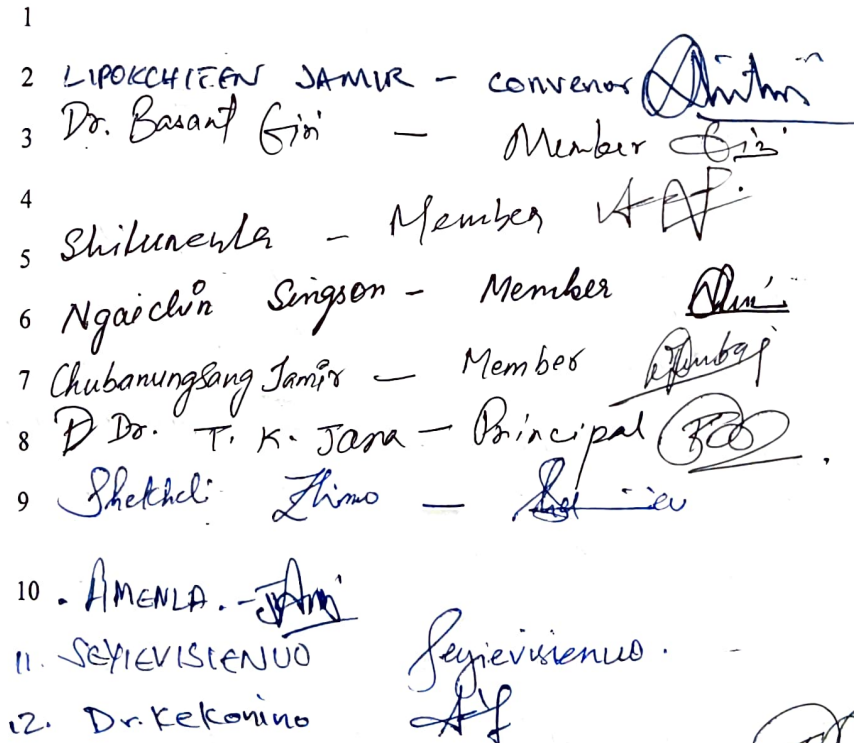 1
2 LIPOKCHITEN JAMIR - convenor
3 Dr. Basant Giri - Member Giri
4
5 Shilunenla - Member
6 Ngaichin Singson - Member
7 Chubanungsang Jamir - Member
8 D Dr. T. K. Jana - Principal
9 Zhimo -
10 . AMENLA. -
11. SEYIEVISIENUO Seyievisienuo.
12. Dr. Kekonino